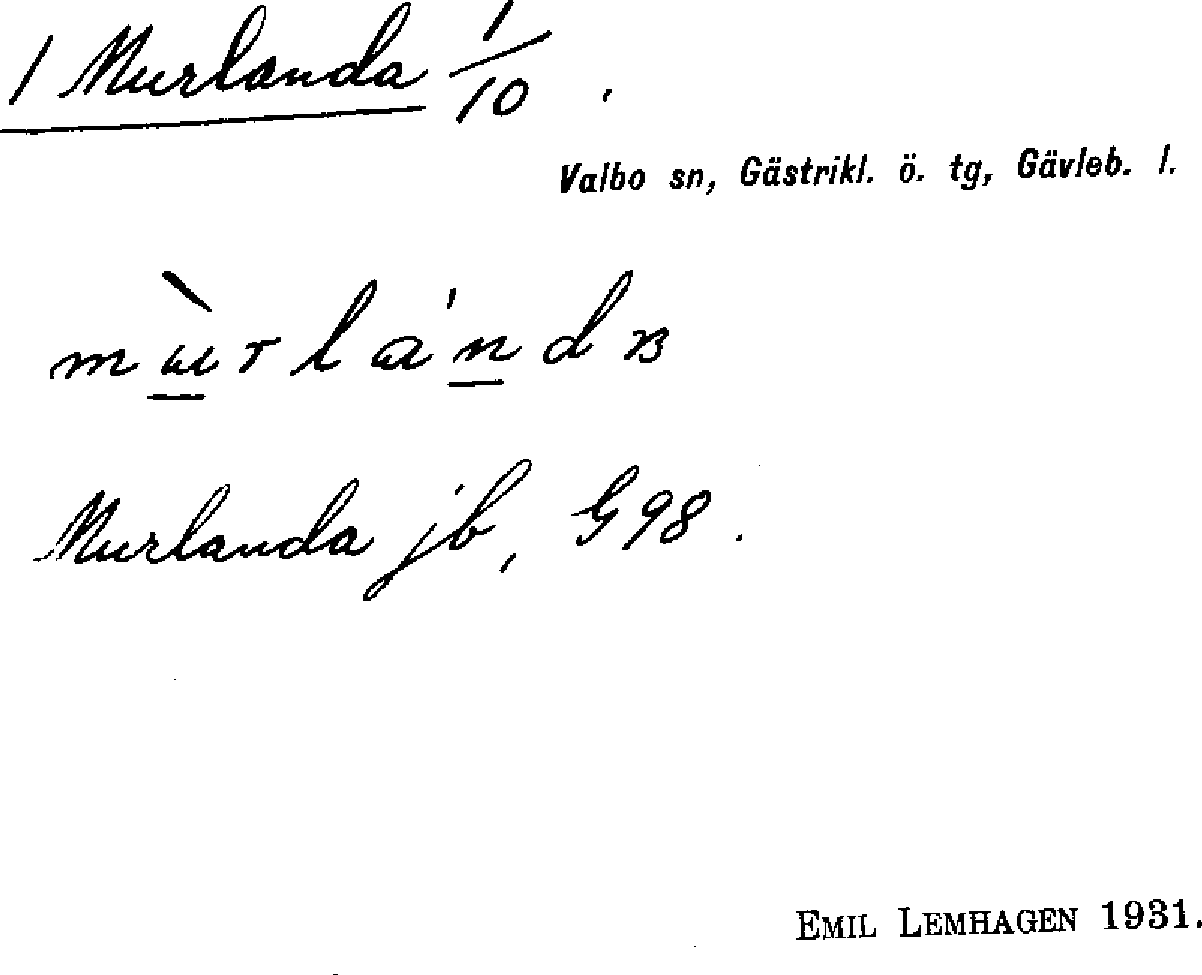 1 Murlanda 1/10.
Valbo sn, Gästrikl. ö. tg, Gävleb. l.
Murlanda jb, G 98.
EMIL LEMHAGEN 1931.